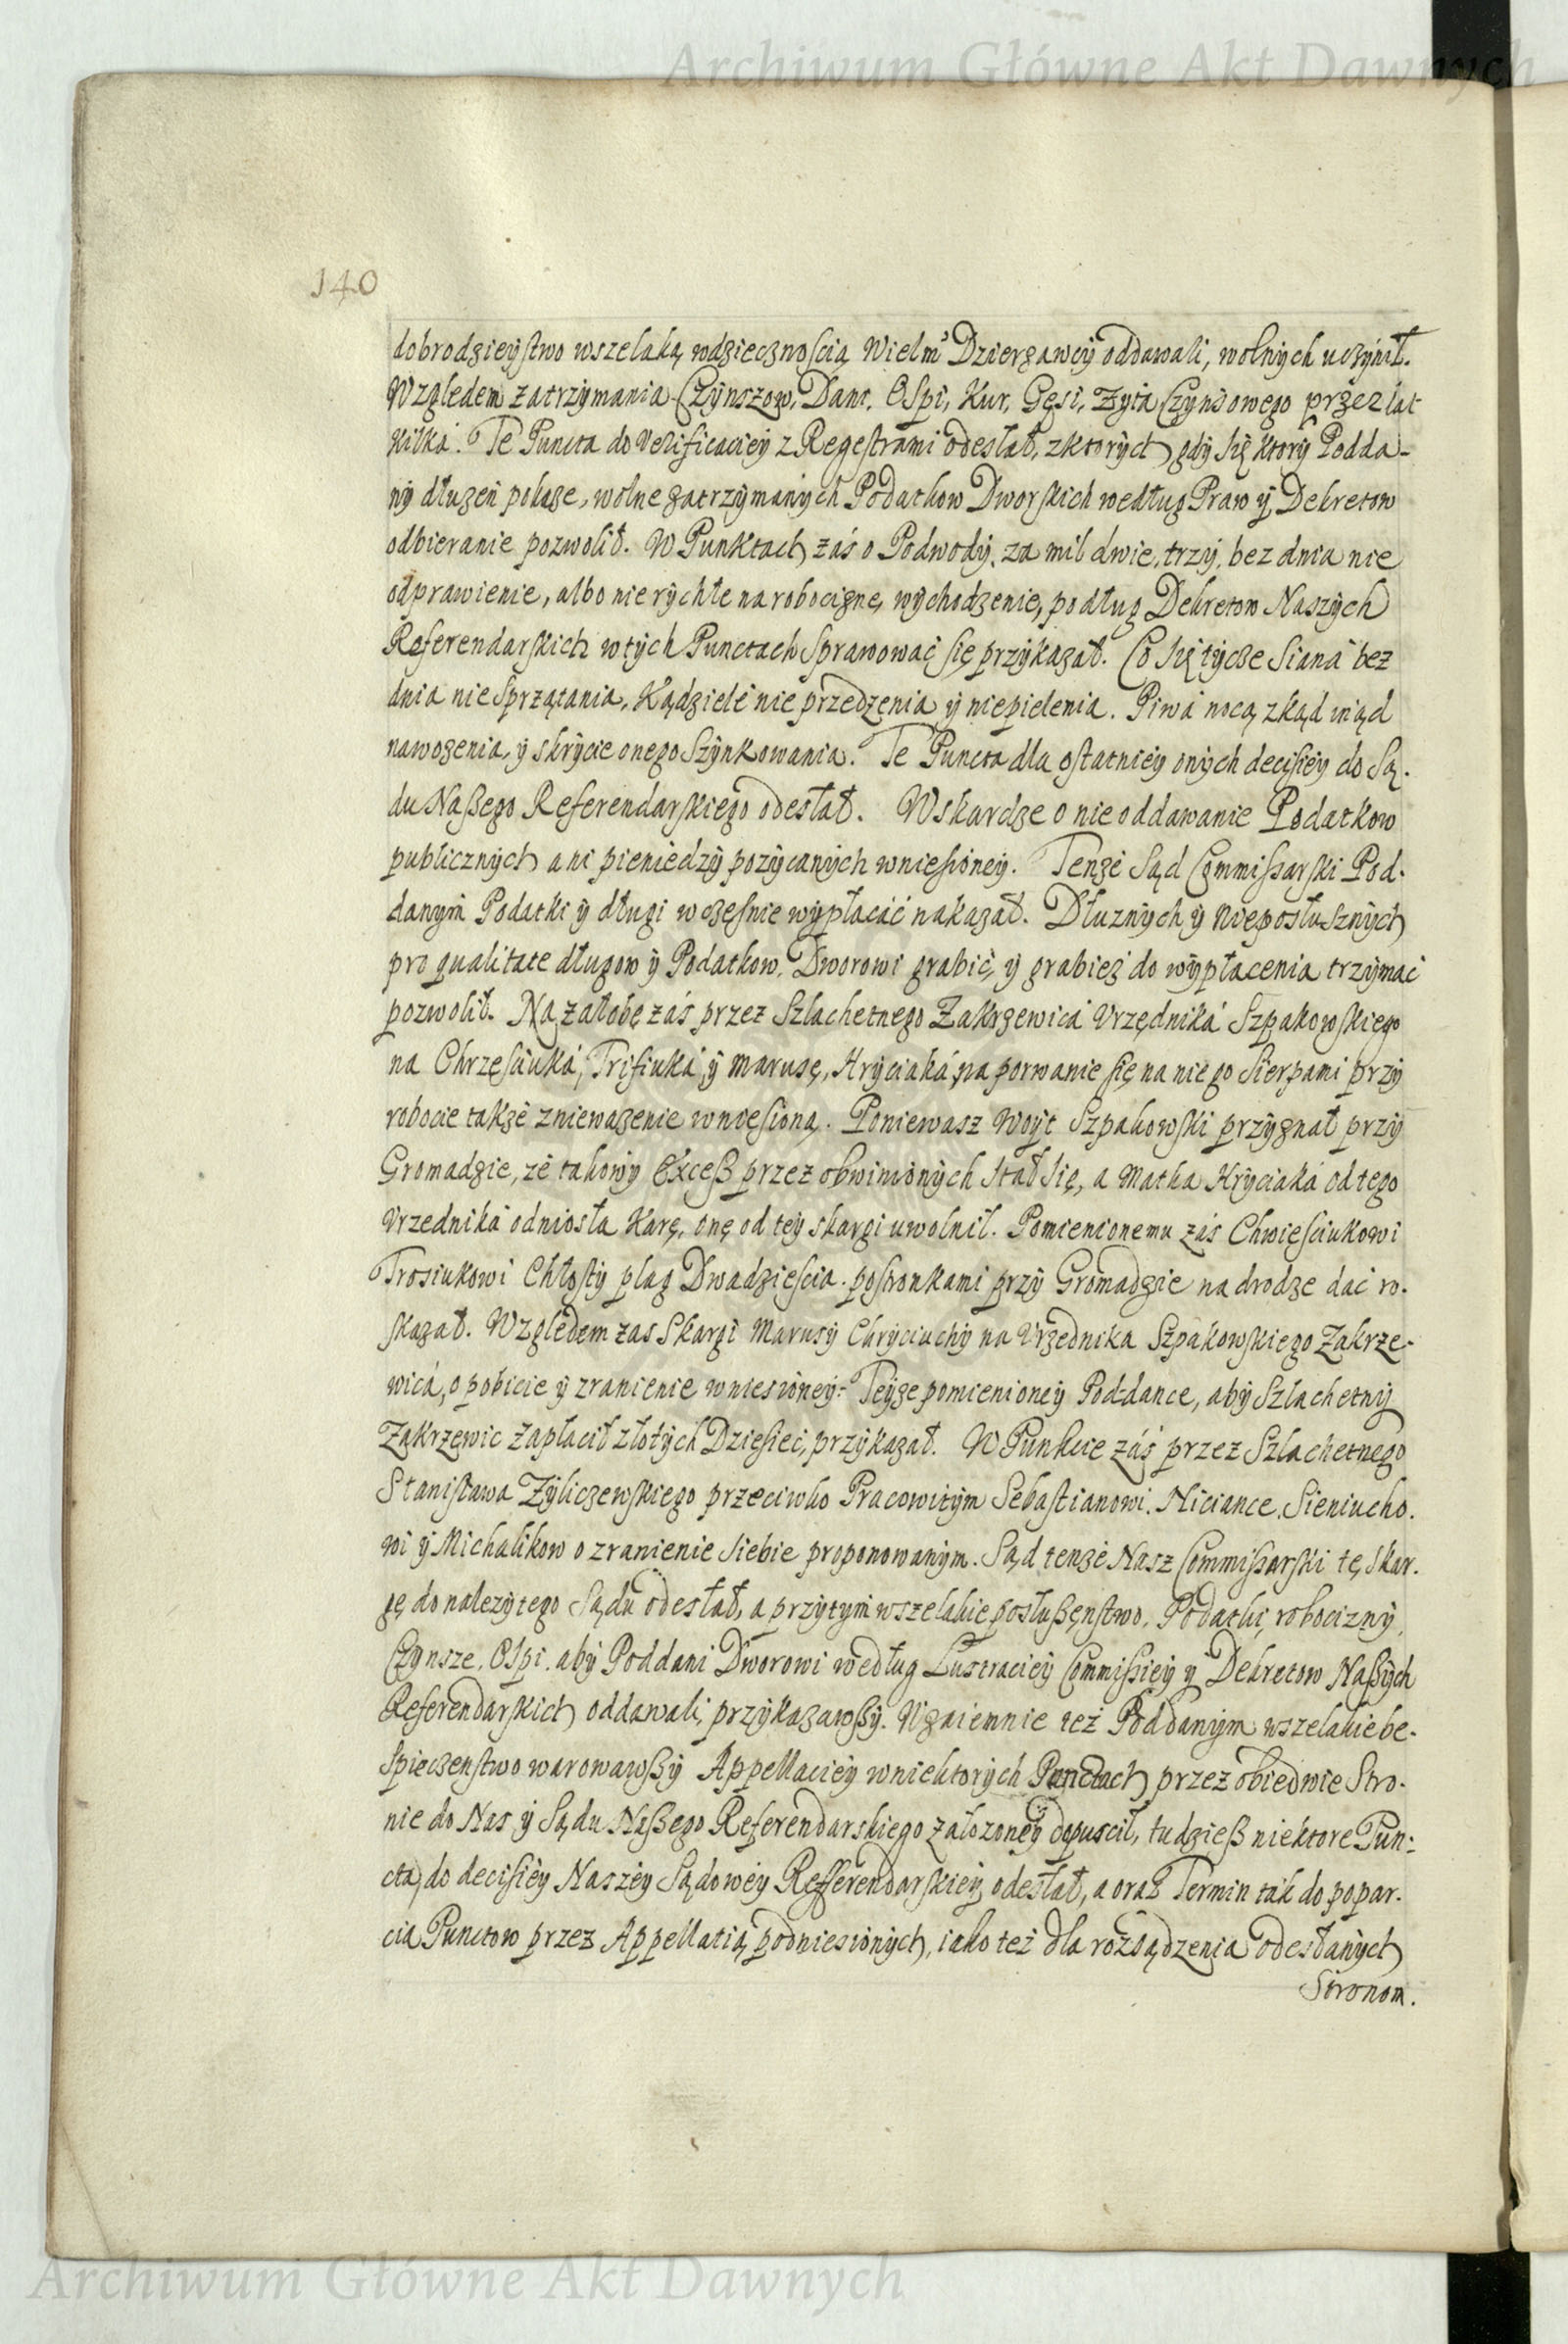 Archiwum Główne Akt Dawnych
140
dobrodzieystwo wszelaką wdzięcznoscią Wielm° Dzierzawcy oddawali, wolnych uczynił.
Względem zatrzymania Czynszow, Dani, Ospi, Kur, Gęsi, Zyta Czynsowego przez lat
kilká. Te Puncta do Verificaciey z Regestrami odesłał, z ktorych gdy się ktory Podda-
ny dłużen pokaze, wolne zatrzymanych Podatkow Dworskich według Praw y Dekretow
odbieranie pozwolił. W Punktach zaś o Podwody, za mil dwie, trzy, bez dnia nie
odprawienie, albo nierychłe na robociznę, wychodzenie, podług Dekretow Naszych
Referendarskich w tych Punctach Sprawować się przykazał. Co się tycze Siana bez
dnia nie Sprzątania, Kądziele nie przedzenia y niepielenia. Piwa nocą zkąd inąd
nawozenia, y skrycie onego Szynkowania. Te Puncta dla ostatniey onych decisiey do Są-
du Naßego Referendarskiego odesłał. W skardze o nie oddawanie Podatkow
publicznych ani pieniędzy pozycanych wniesioney. Tenze Sąd Commissarski Pod-
danym Podatki y długi wczesnie wypłacać nakazał. Dłuznych y nieposłusznych
pro qualitate długow y Podatkow, Dworowi grabić, y grabież do wypłacenia trzymać
pozwolił. Na załobę záś przez Szlachetnego Zakrzewica Vrzędniká Szpakowskiego
na Chrzesciuká, Trisiuká, y Marusę, Hryciaká, na porwanie się na niego Sierpami przy
robocie takze zniewazenie wniesioną. Poniewasz Woyt Szpakowski przyznał przy
Gromadzie, ze takowy Exceß przez obwinionych Stał się, a Matka Hryciaka od tego
Vrzednika odniosła Karę, onę od tey skargi uwolnił. Pomienionemu záś Chwiesciukowi
Trosiukowi Chłosty plag Dwadziescia postronkami przy Gromadzie na drodze dać ro-
skazał. Względem zas Skargi Marusy Chryciuchy na Vrzednika Szpakowskiego Zakrze-
wicá, o pobicie y zranienie wniesioney: Teyze pomienioney Poddance, aby Szlachetny
Zakrzewic zapłacił złotych Dziesiec, przykazał. W Punkcie záś przez Szlachetnego
Stanisława Zyliczewskiego przeciwko Pracowitym Sebastianowi, Niciance, Sieniucho-
wi y Michalikow o zranienie siebie proponowanym. Sąd tenże Nasz Commissarski tę skar-
gę do nalezytego Sądu odesłał, a przytym wszelakie posłußęnstwo, Podatki, robocizny,
Czynsze, Ospi, aby Poddani Dworowi według Lustraciey Commissiey y Dekretow Naßych
Referendarskich oddawali, przykazawßy. Wzaiemnie też Poddanym wszelakie be-
spieczenstwo warowawßy Appellaciey w niektorych Punctach przez obiedwie Stro-
nie do Nas y Sądu Naßego Referendarskiego załozoney dopuscił, tudzieß niektore Pun-
cta, do decisiey Naszey Sądowey Refferendarskiey odesłał, a oraz Termin tak do popar-
cia Punctow przez Appellatią podniesionych, iako też dla rozsądzenia odesłanych
Stronom.
Archiwum Główne Akt Dawnych